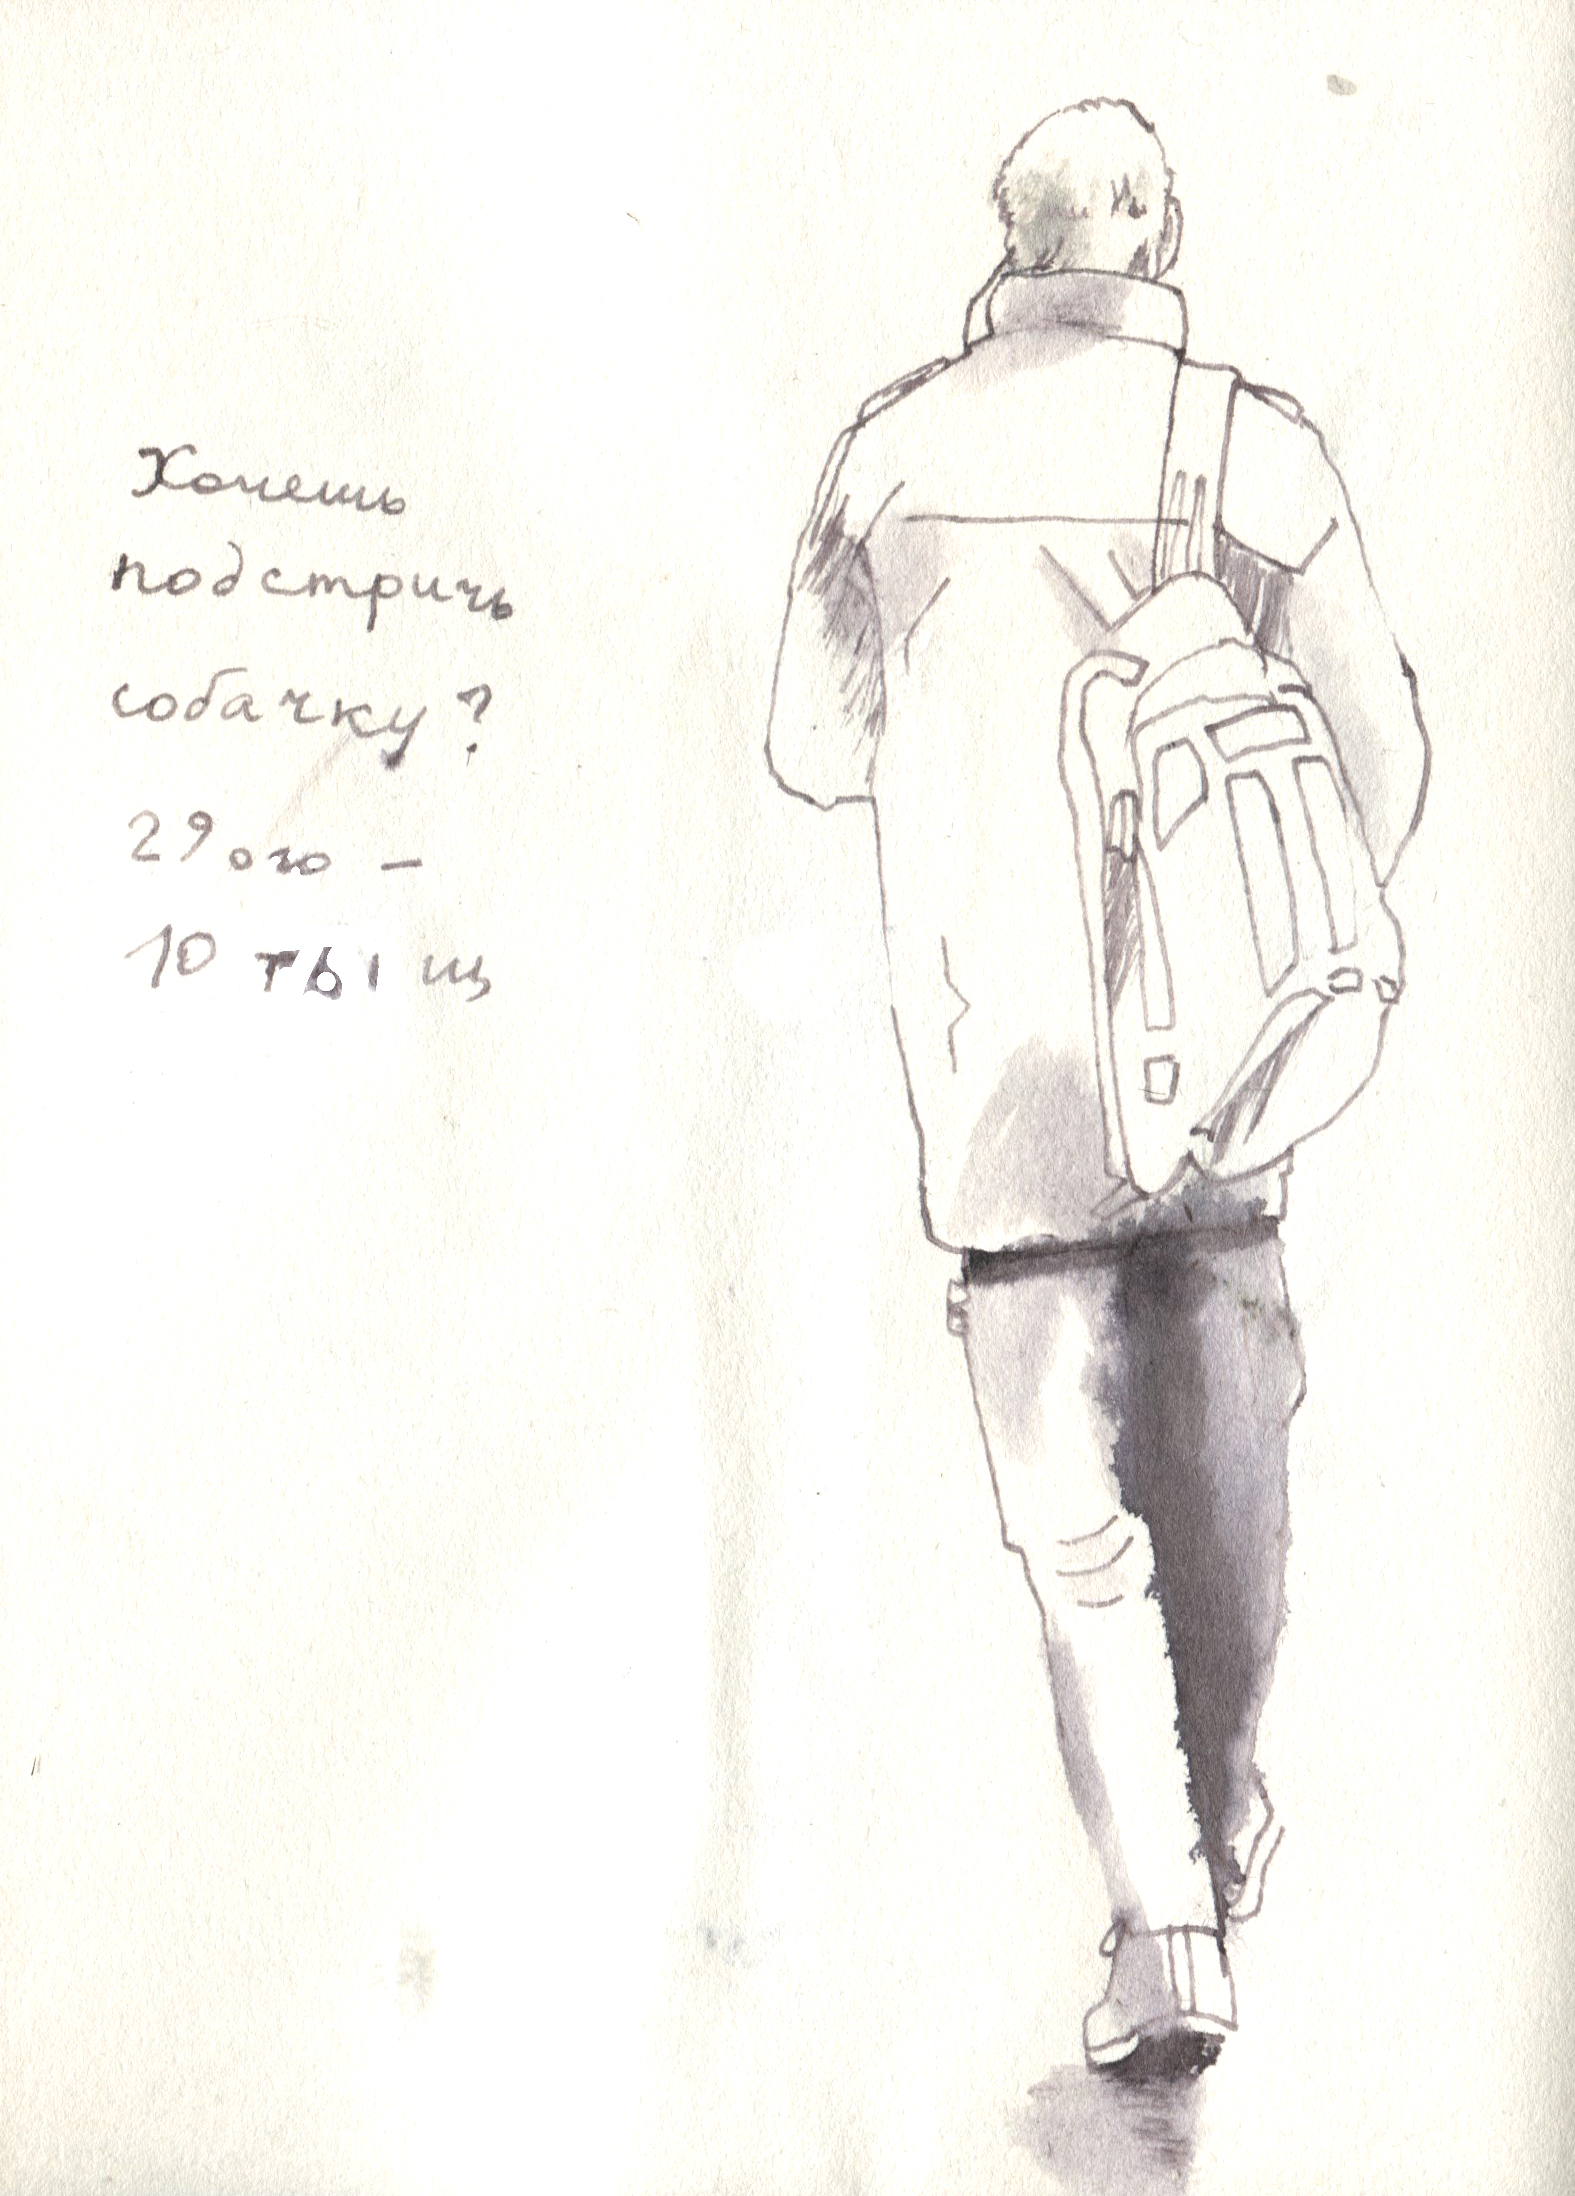 Хочешь
подстричь
собачку?
29ого –
10 тыщ